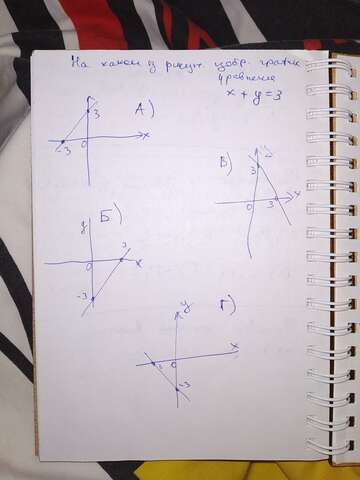 На каком из рисун. изобр. график
уравнения
x + y = 3
А)
3
-3
0
x
В)
3
0
3
x
Б)
y
0
3
x
-3
Г)
y
x
0
-3